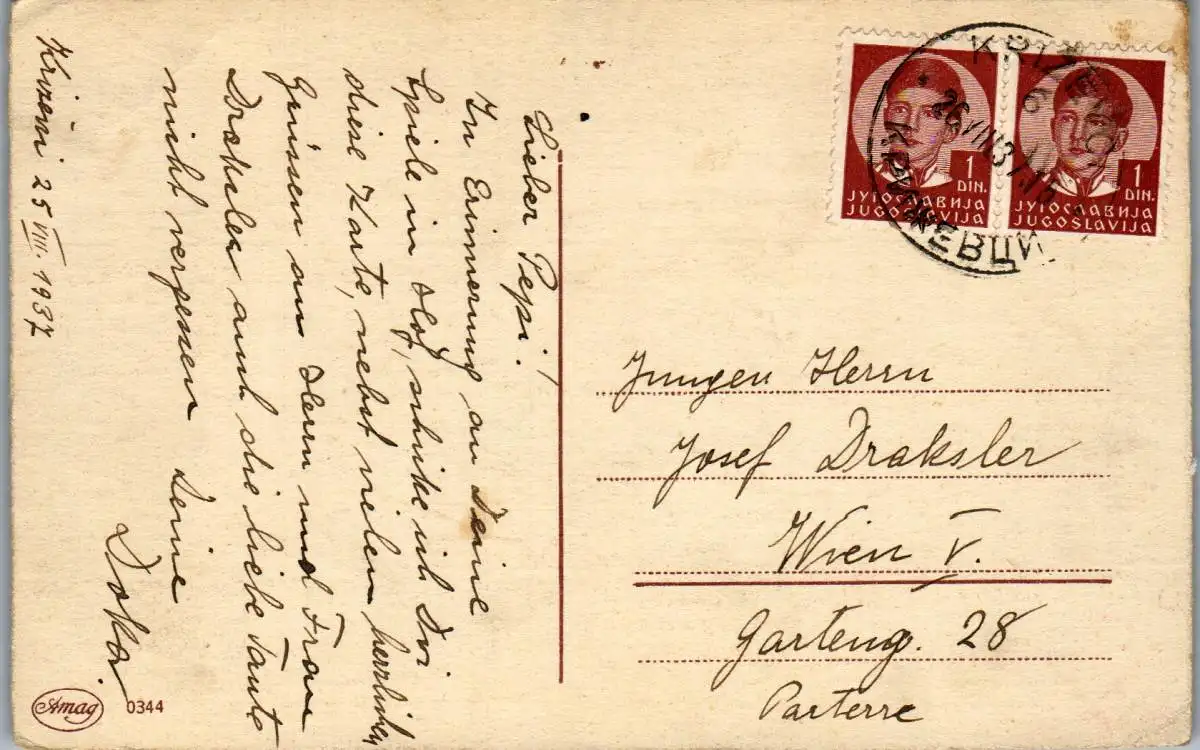 Križevci 25 VIII. 1937
Lieber Pepi!
In Erinnerung an Deine
Spiele im Hof, schicke ich Dir
diese Karte, nebst vielen herzlichen
Grüssen an Herrn und Frau
Draksler und die liebe Tante
nicht vergessen Deine
KRIŽEVCI
26.VIII.37.15
КРИЖЕВЦИ
1
DIN.
ЈУГОСЛАВИЈА
JUGOSLAVIJA
1
DIN.
ЈУГОСЛАВИЈА
JUGOSLAVIJA
Jungen Herrn
Josef Draksler
Wien V.
Garteng. 28
Parterre
Amag 0344